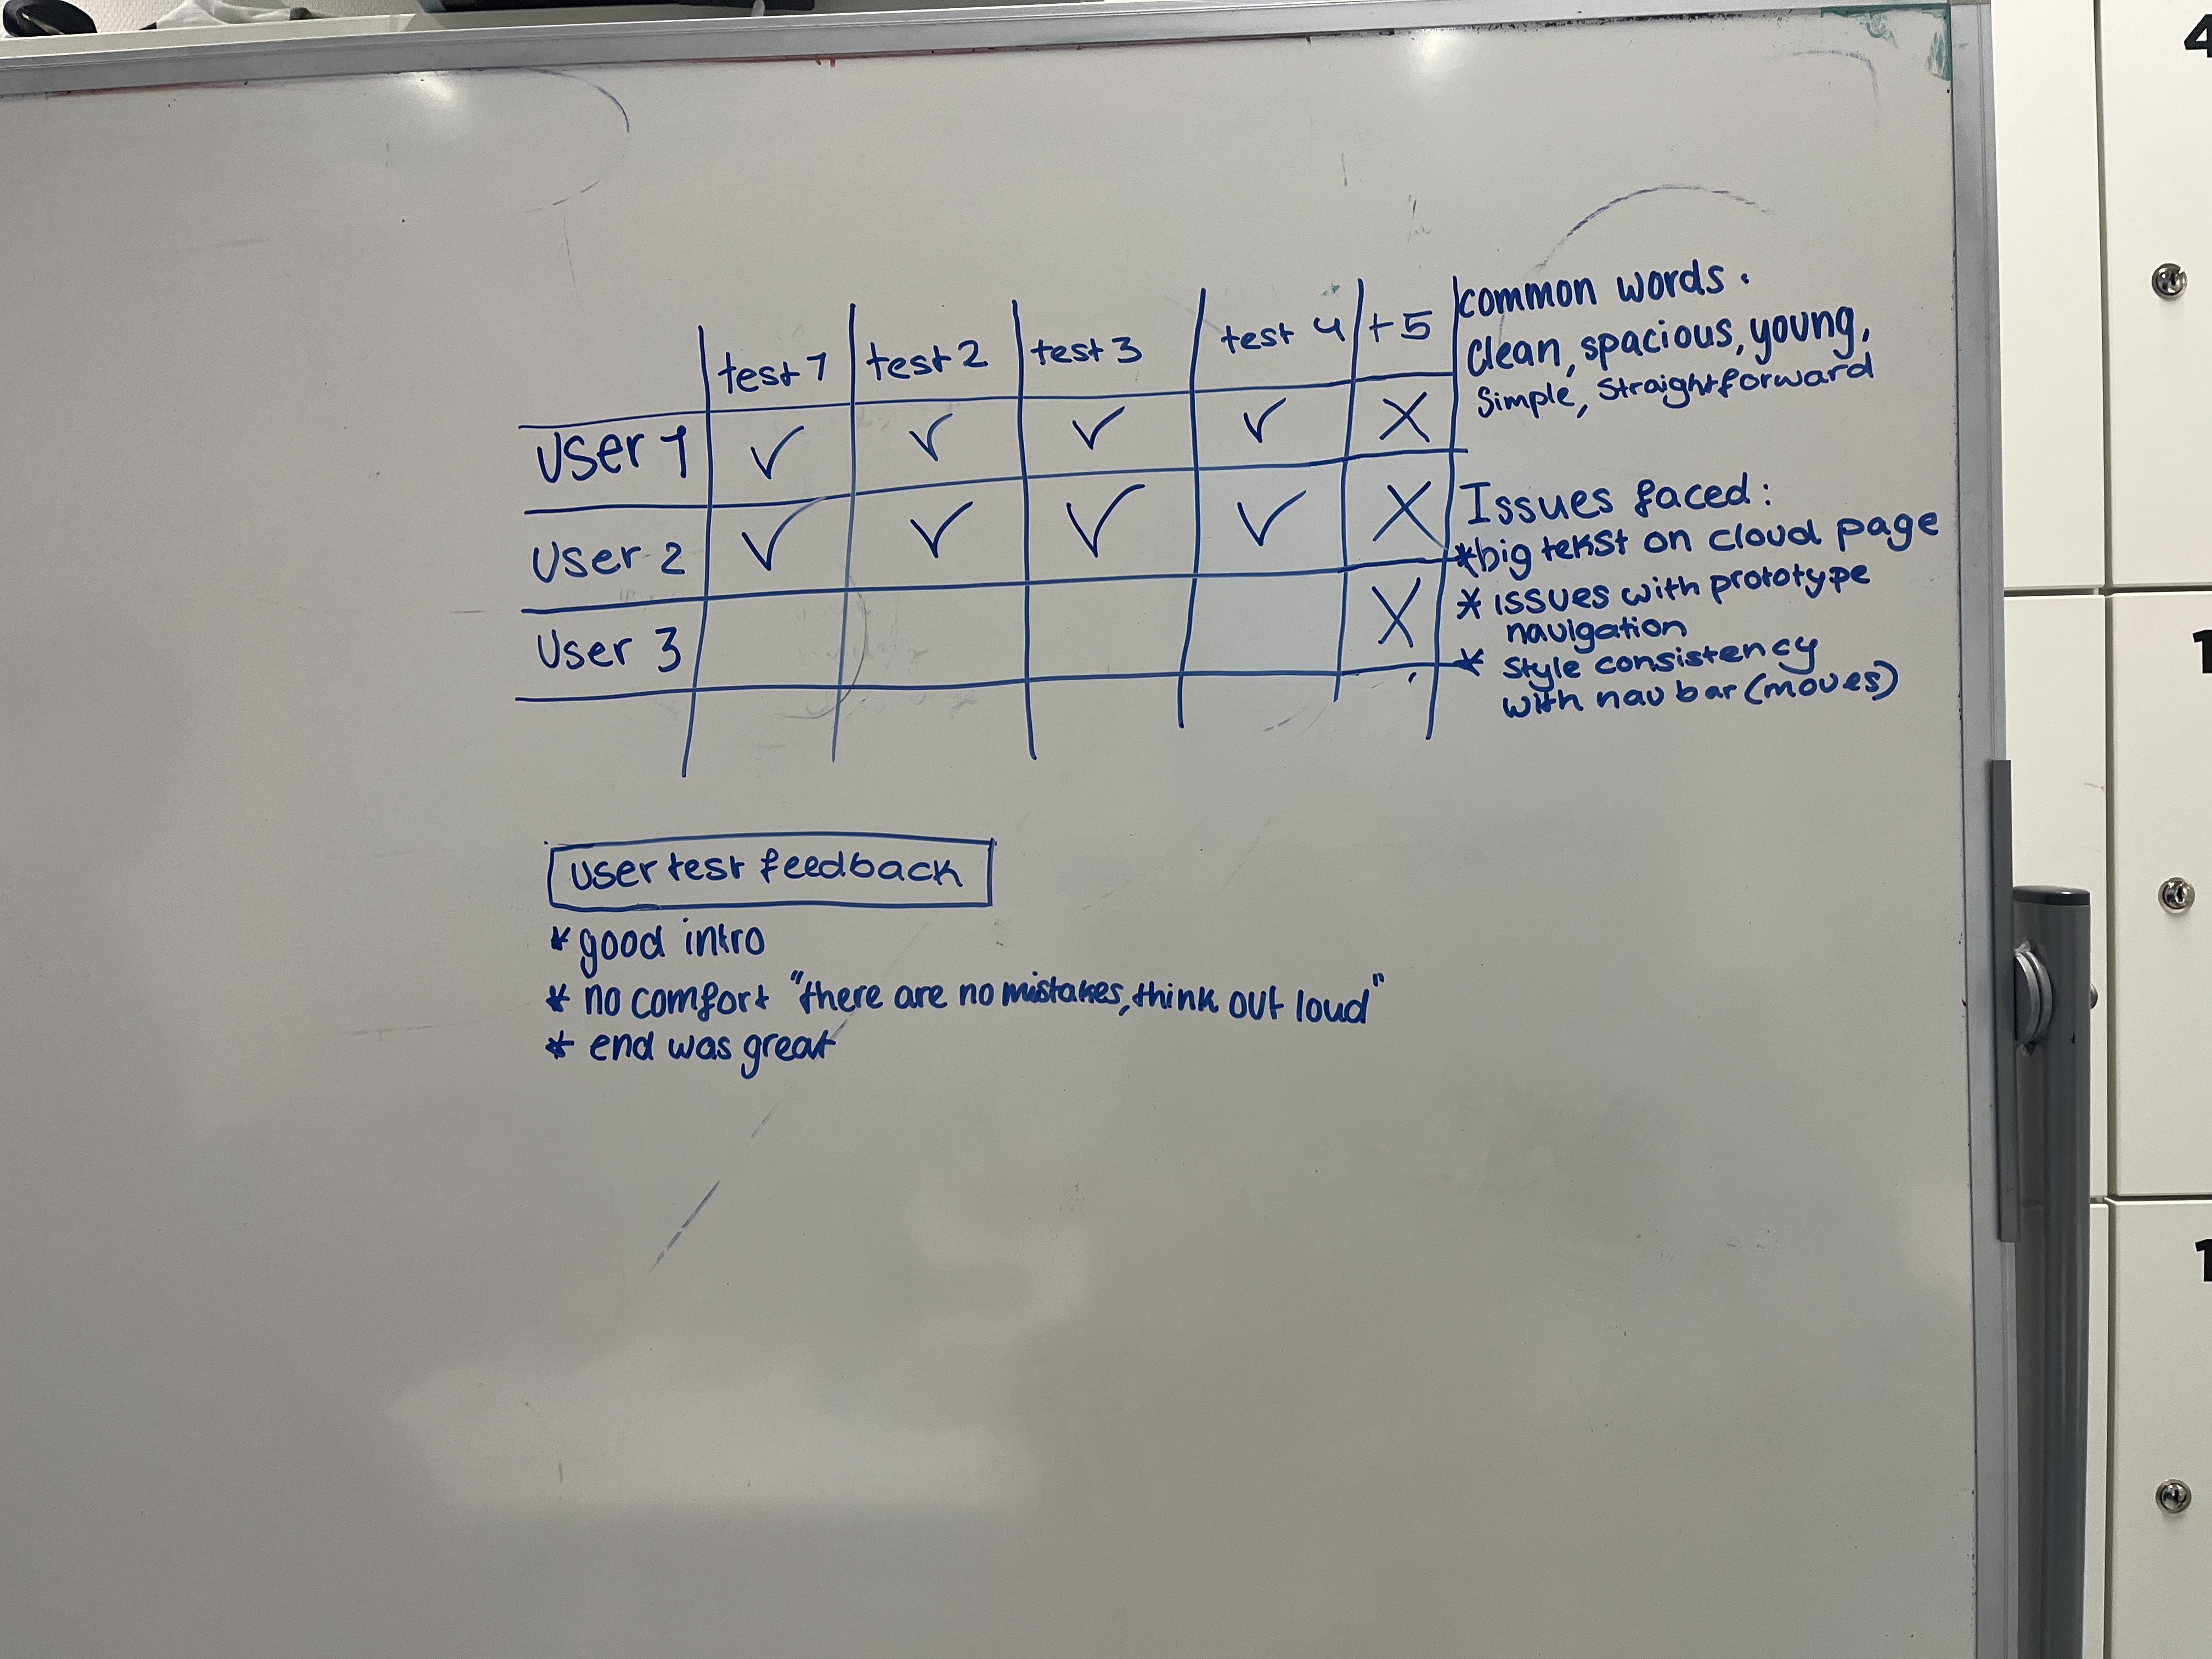 test 1 test 2 test 3 test 4 t 5
User 1 ✓ ✓ ✓ ✓ X
User 2 ✓ ✓ ✓ ✓ X
User 3 X
common words.
Clean, spacious, young,
Simple, Straightforward
Issues faced:
*big tekst on cloud page
* issues with prototype
navigation
* style consistency
with nav bar (moves)
user test feedback
* good intro
* no comfort "there are no mistakes, think out loud"
* end was great
4
1
1